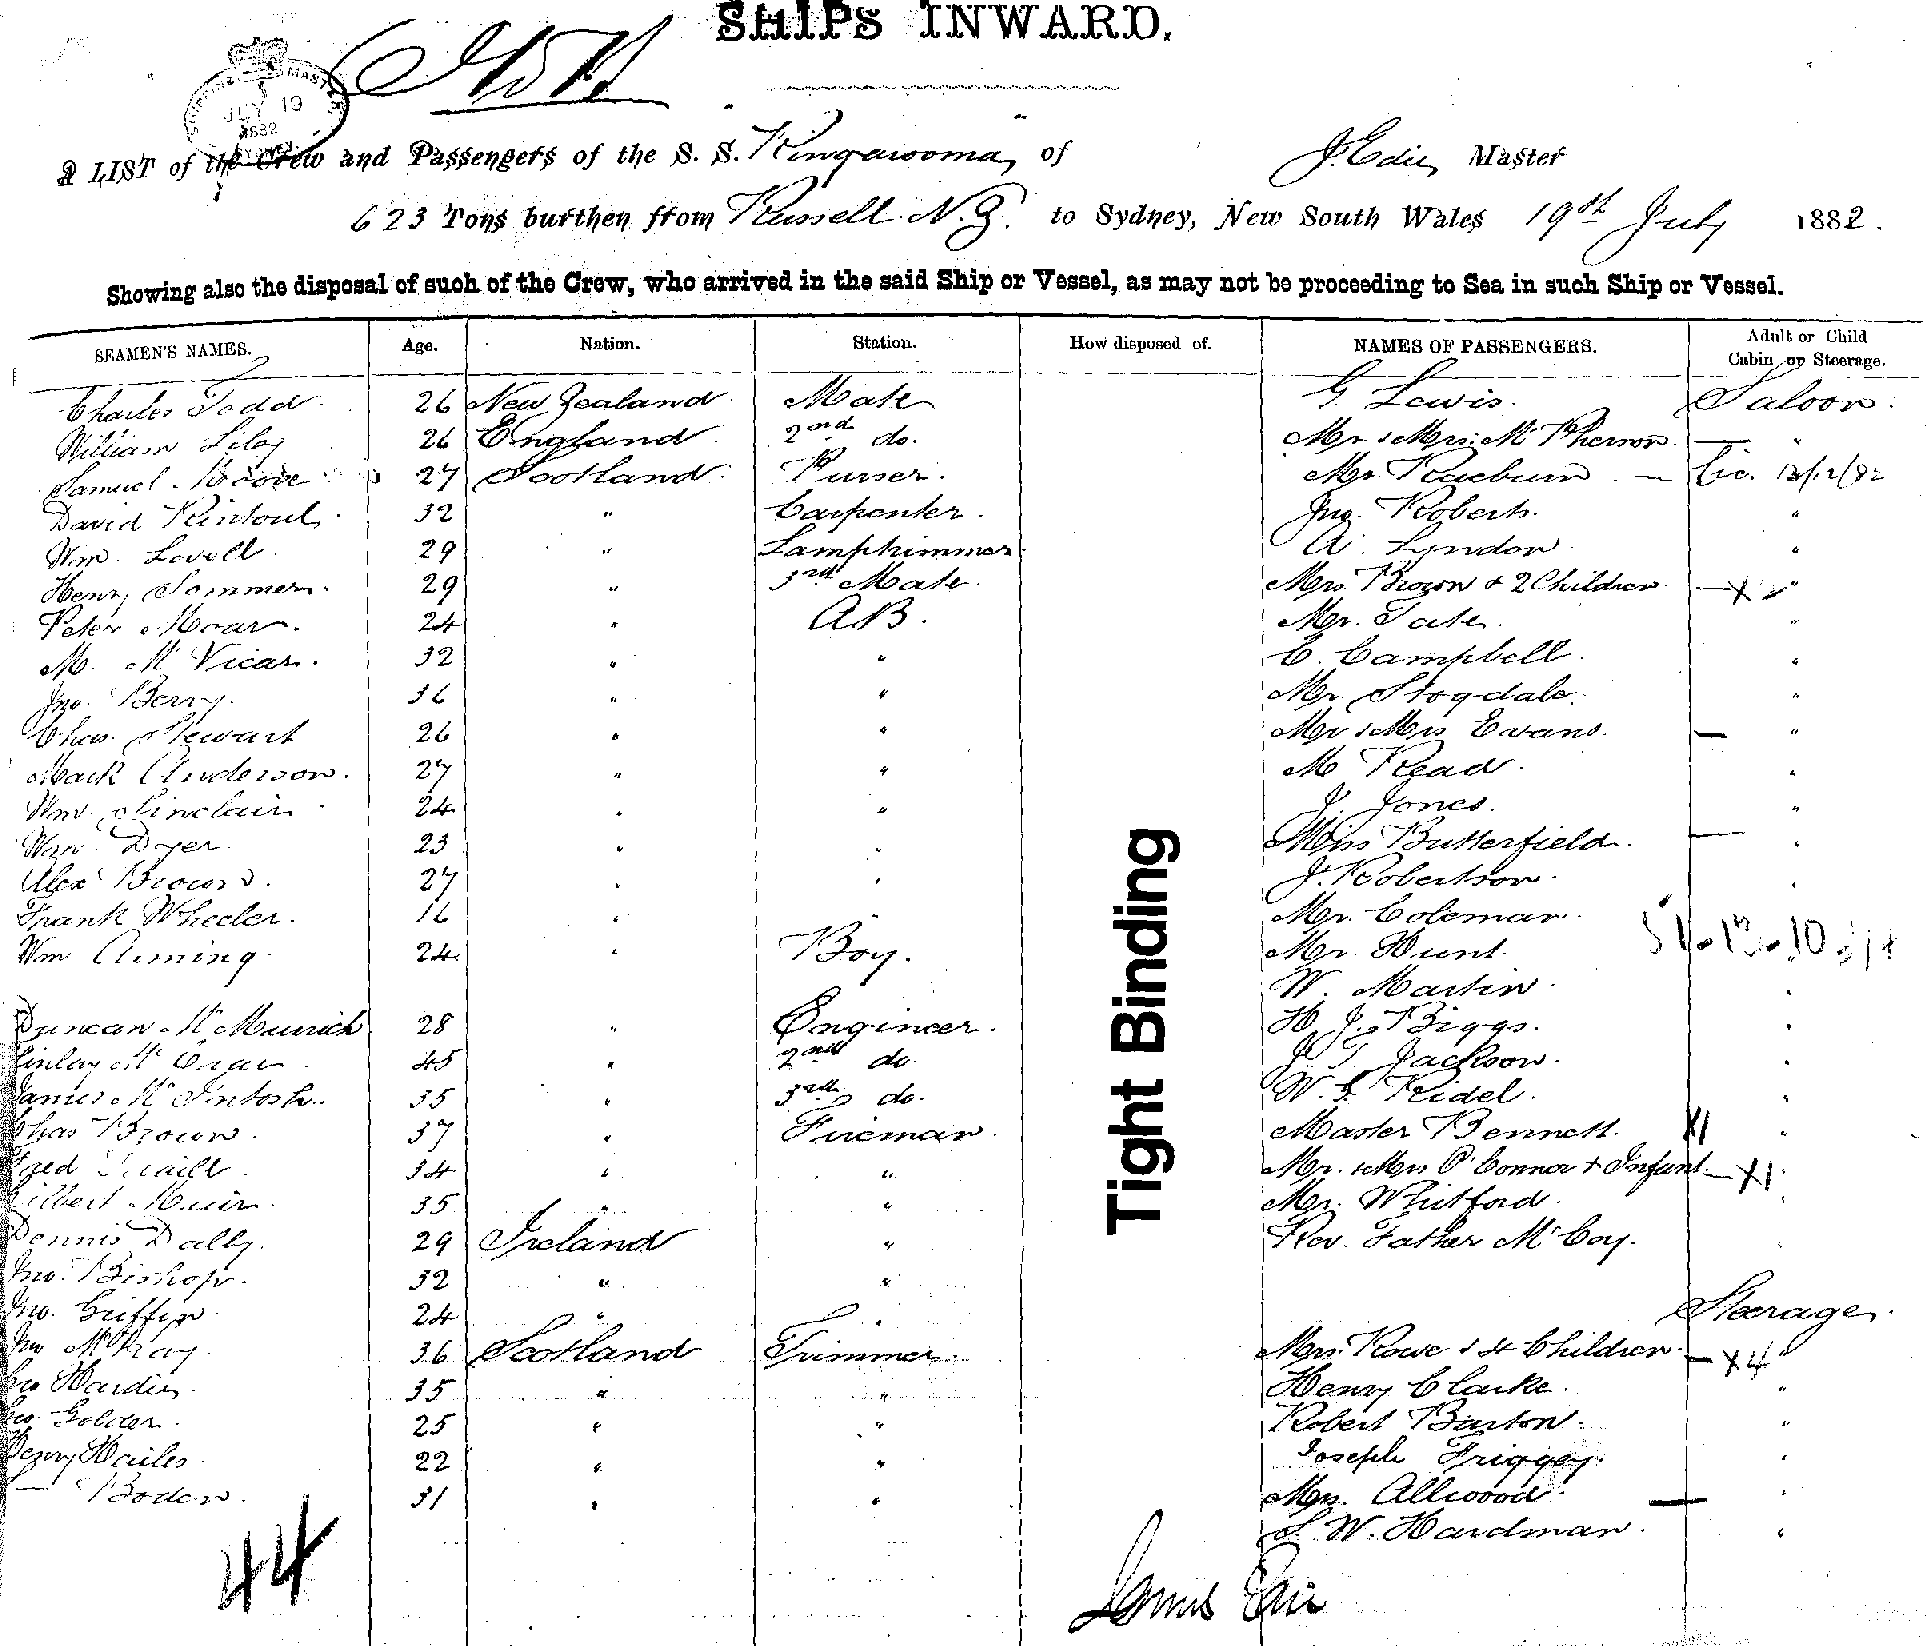 SHIPS INWARD.
JULY 19
1882
A LIST of the Crew and Passengers of the S. S. Ringarooma, of J. Edie, Master
623 Tons burthen from Russell N.Z. to Sydney, New South Wales 19th July 1882.
Showing also the disposal of such of the Crew, who arrived in the said Ship or Vessel, as may not be proceeding to Sea in such Ship or Vessel.
SEAMEN'S NAMES. Age. Nation. Station. How disposed of. NAMES OF PASSENGERS. Adult or Child Cabin or Steerage.
Charles Todd 26 New Zealand Mate G Lewis. Saloon.
William 26 England 2nd do. Mr & Mrs McPherson — "
Samuel Moore 27 Scotland Purser. Mr Raeburn —
David Rintoul 32 " Carpenter. Jno. Roberts. "
Wm. Lovell 29 " Lamptrimmer A. Lyndon "
Henry Sommers. 29 " 3rd Mate. Mrs Brown & 2 Children — x 2 "
Peter Moar. 24 " AB. Mr. Tate. "
M. McVicar. 32 " " C. Campbell. "
Jno. Berry. 36 " " Mr Stogdale. "
Chas. Stewart 26 " " Mr & Mrs Evans. — "
Mack Anderson. 27 " " M Read. "
Wm. Sinclair 24 " " J. Jones. "
Wm. Dyer. 23 " " Miss Butterfield. — "
Alex Brown. 27 " " J. Robertson. "
Frank Wheeler. 16 " " Mr. Coleman. 51.-12.-10
Wm 24 " Boy. Mr Hunt
W. Martin. "
Duncan McMurrich 28 " Engineer. H. J. Biggs. "
Finlay 45 " 2nd do J. T. Jackson. "
James McIntosh. 35 " 3rd do. W. Ridel. "
Chas Brown. 37 " Fireman. Master Bennett x1 "
34 " " Mr. & Mrs O'Connor & Infant — x1.
Gilbert Muir. 35 " " Mr. Whitford. "
Dennis Dally. 29 Ireland " Rev. Father McCoy.
Jno. Bishop. 32 " "
Jno. Griffin. 24 " " Steerage.
Jno McKay. 36 Scotland Trimmer. Mrs. Rowe & 4 Children — x 4
Geo Hardie. 35 " " Henry Clarke. "
Geo. Golder. 25 " " Robert Barton. "
Henry Hailes 22 " " Joseph Triggey. "
— Boden. 31 " " Mrs. Allwood. — "
S. W. Hardman. "
44
James Edie
Tight Binding